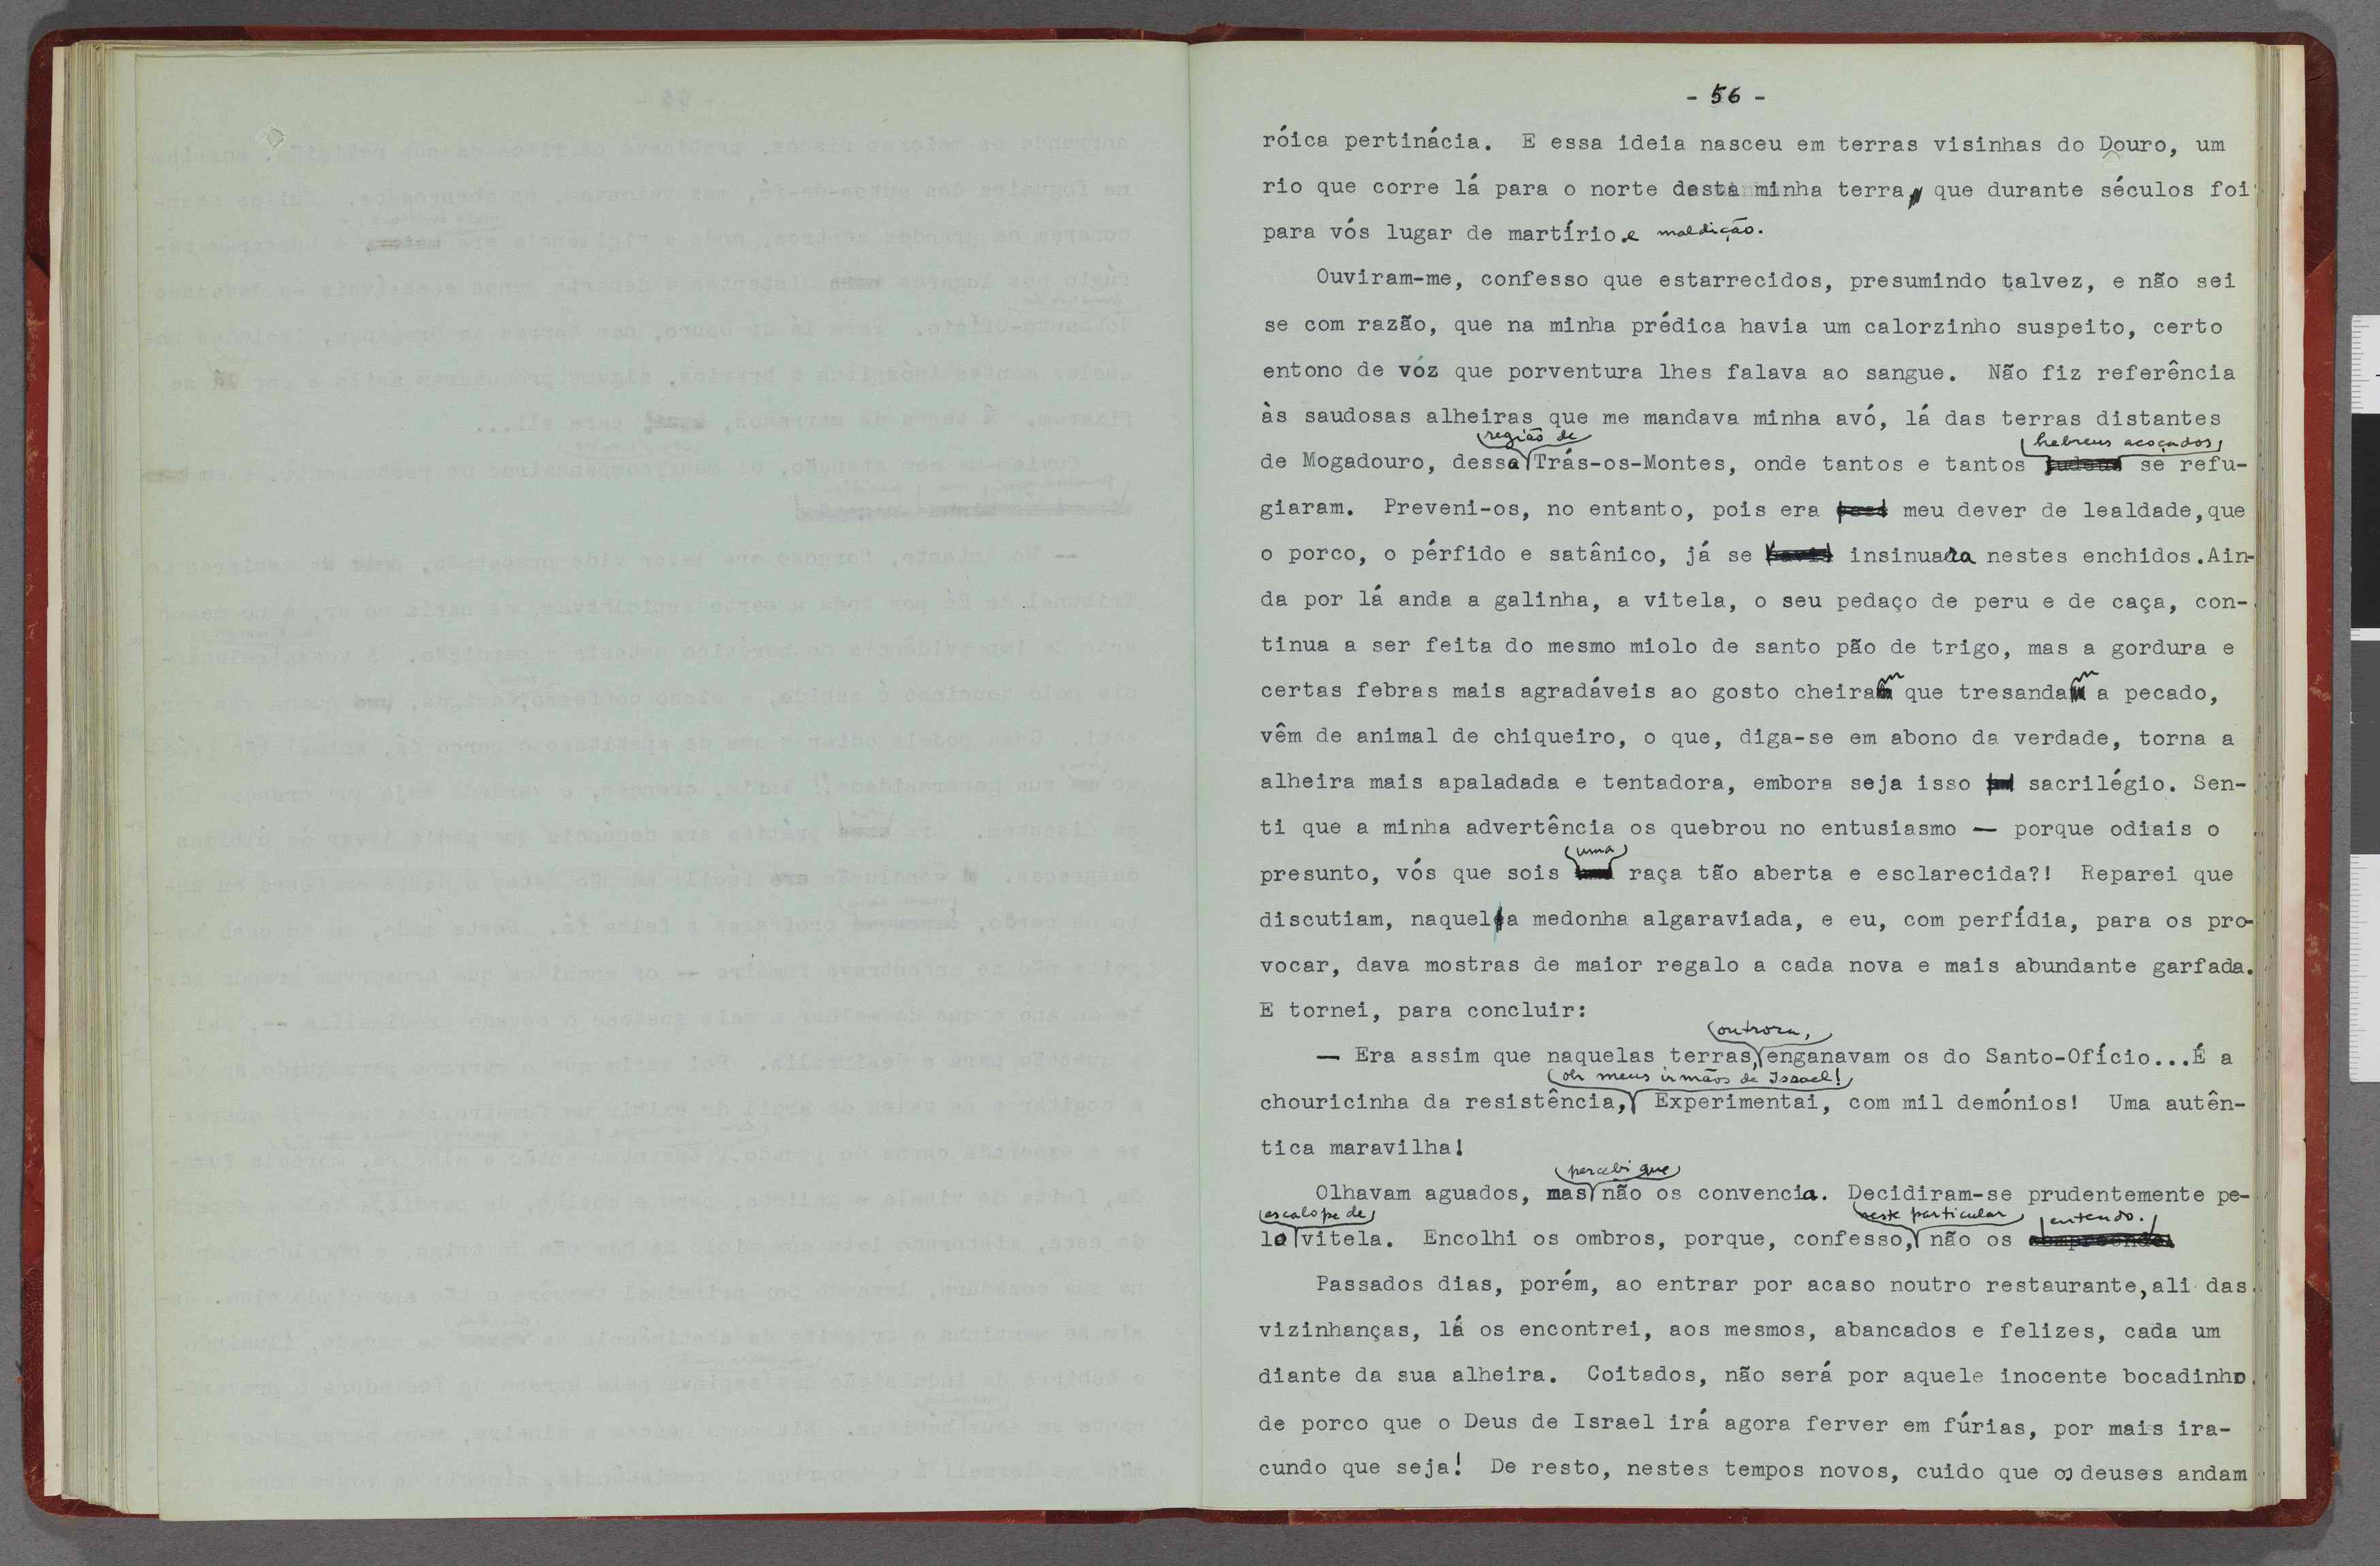 - 56 -
róica pertinácia. E essa ideia nasceu em terras visinhas do Douro, um
rio que corre lá para o norte desta minha terra, que durante séculos foi
para vós lugar de martírio e maldição.
Ouviram-me, confesso que estarrecidos, presumindo talvez, e não sei
se com razão, que na minha prédica havia um calorzinho suspeito, certo
entono de vóz que porventura lhes falava ao sangue. Não fiz referência
às saudosas alheiras que me mandava minha avó, lá das terras distantes
região de
hebreus acoçados
de Mogadouro, dessa Trás-os-Montes, onde tantos e tantos se refu-
giaram. Preveni-os, no entanto, pois era meu dever de lealdade, que
o porco, o pérfido e satânico, já se insinuara nestes enchidos. Ain-
da por lá anda a galinha, a vitela, o seu pedaço de peru e de caça, con-
tinua a ser feita do mesmo miolo de santo pão de trigo, mas a gordura e
certas febras mais agradáveis ao gosto cheiram que tresandam a pecado,
vêm de animal de chiqueiro, o que, diga-se em abono da verdade, torna a
alheira mais apaladada e tentadora, embora seja isso sacrilégio. Sen-
ti que a minha advertência os quebrou no entusiasmo — porque odiais o
uma
presunto, vós que sois raça tão aberta e esclarecida?! Reparei que
discutiam, naquela medonha algaraviada, e eu, com perfídia, para os pro-
vocar, dava mostras de maior regalo a cada nova e mais abundante garfada.
E tornei, para concluir:
outrora,
— Era assim que naquelas terras, enganavam os do Santo-Ofício...É a
oh meus irmãos de Israel!
chouricinha da resistência, Experimentai, com mil demónios! Uma autên-
tica maravilha!
percebi que
Olhavam aguados, mas não os convencia. Decidiram-se prudentemente pe-
escalope de
neste particular
entendo.
lo vitela. Encolhi os ombros, porque, confesso, não os
Passados dias, porém, ao entrar por acaso noutro restaurante, ali das
vizinhanças, lá os encontrei, aos mesmos, abancados e felizes, cada um
diante da sua alheira. Coitados, não será por aquele inocente bocadinho
de porco que o Deus de Israel irá agora ferver em fúrias, por mais ira-
cundo que seja! De resto, nestes tempos novos, cuido que os deuses andam